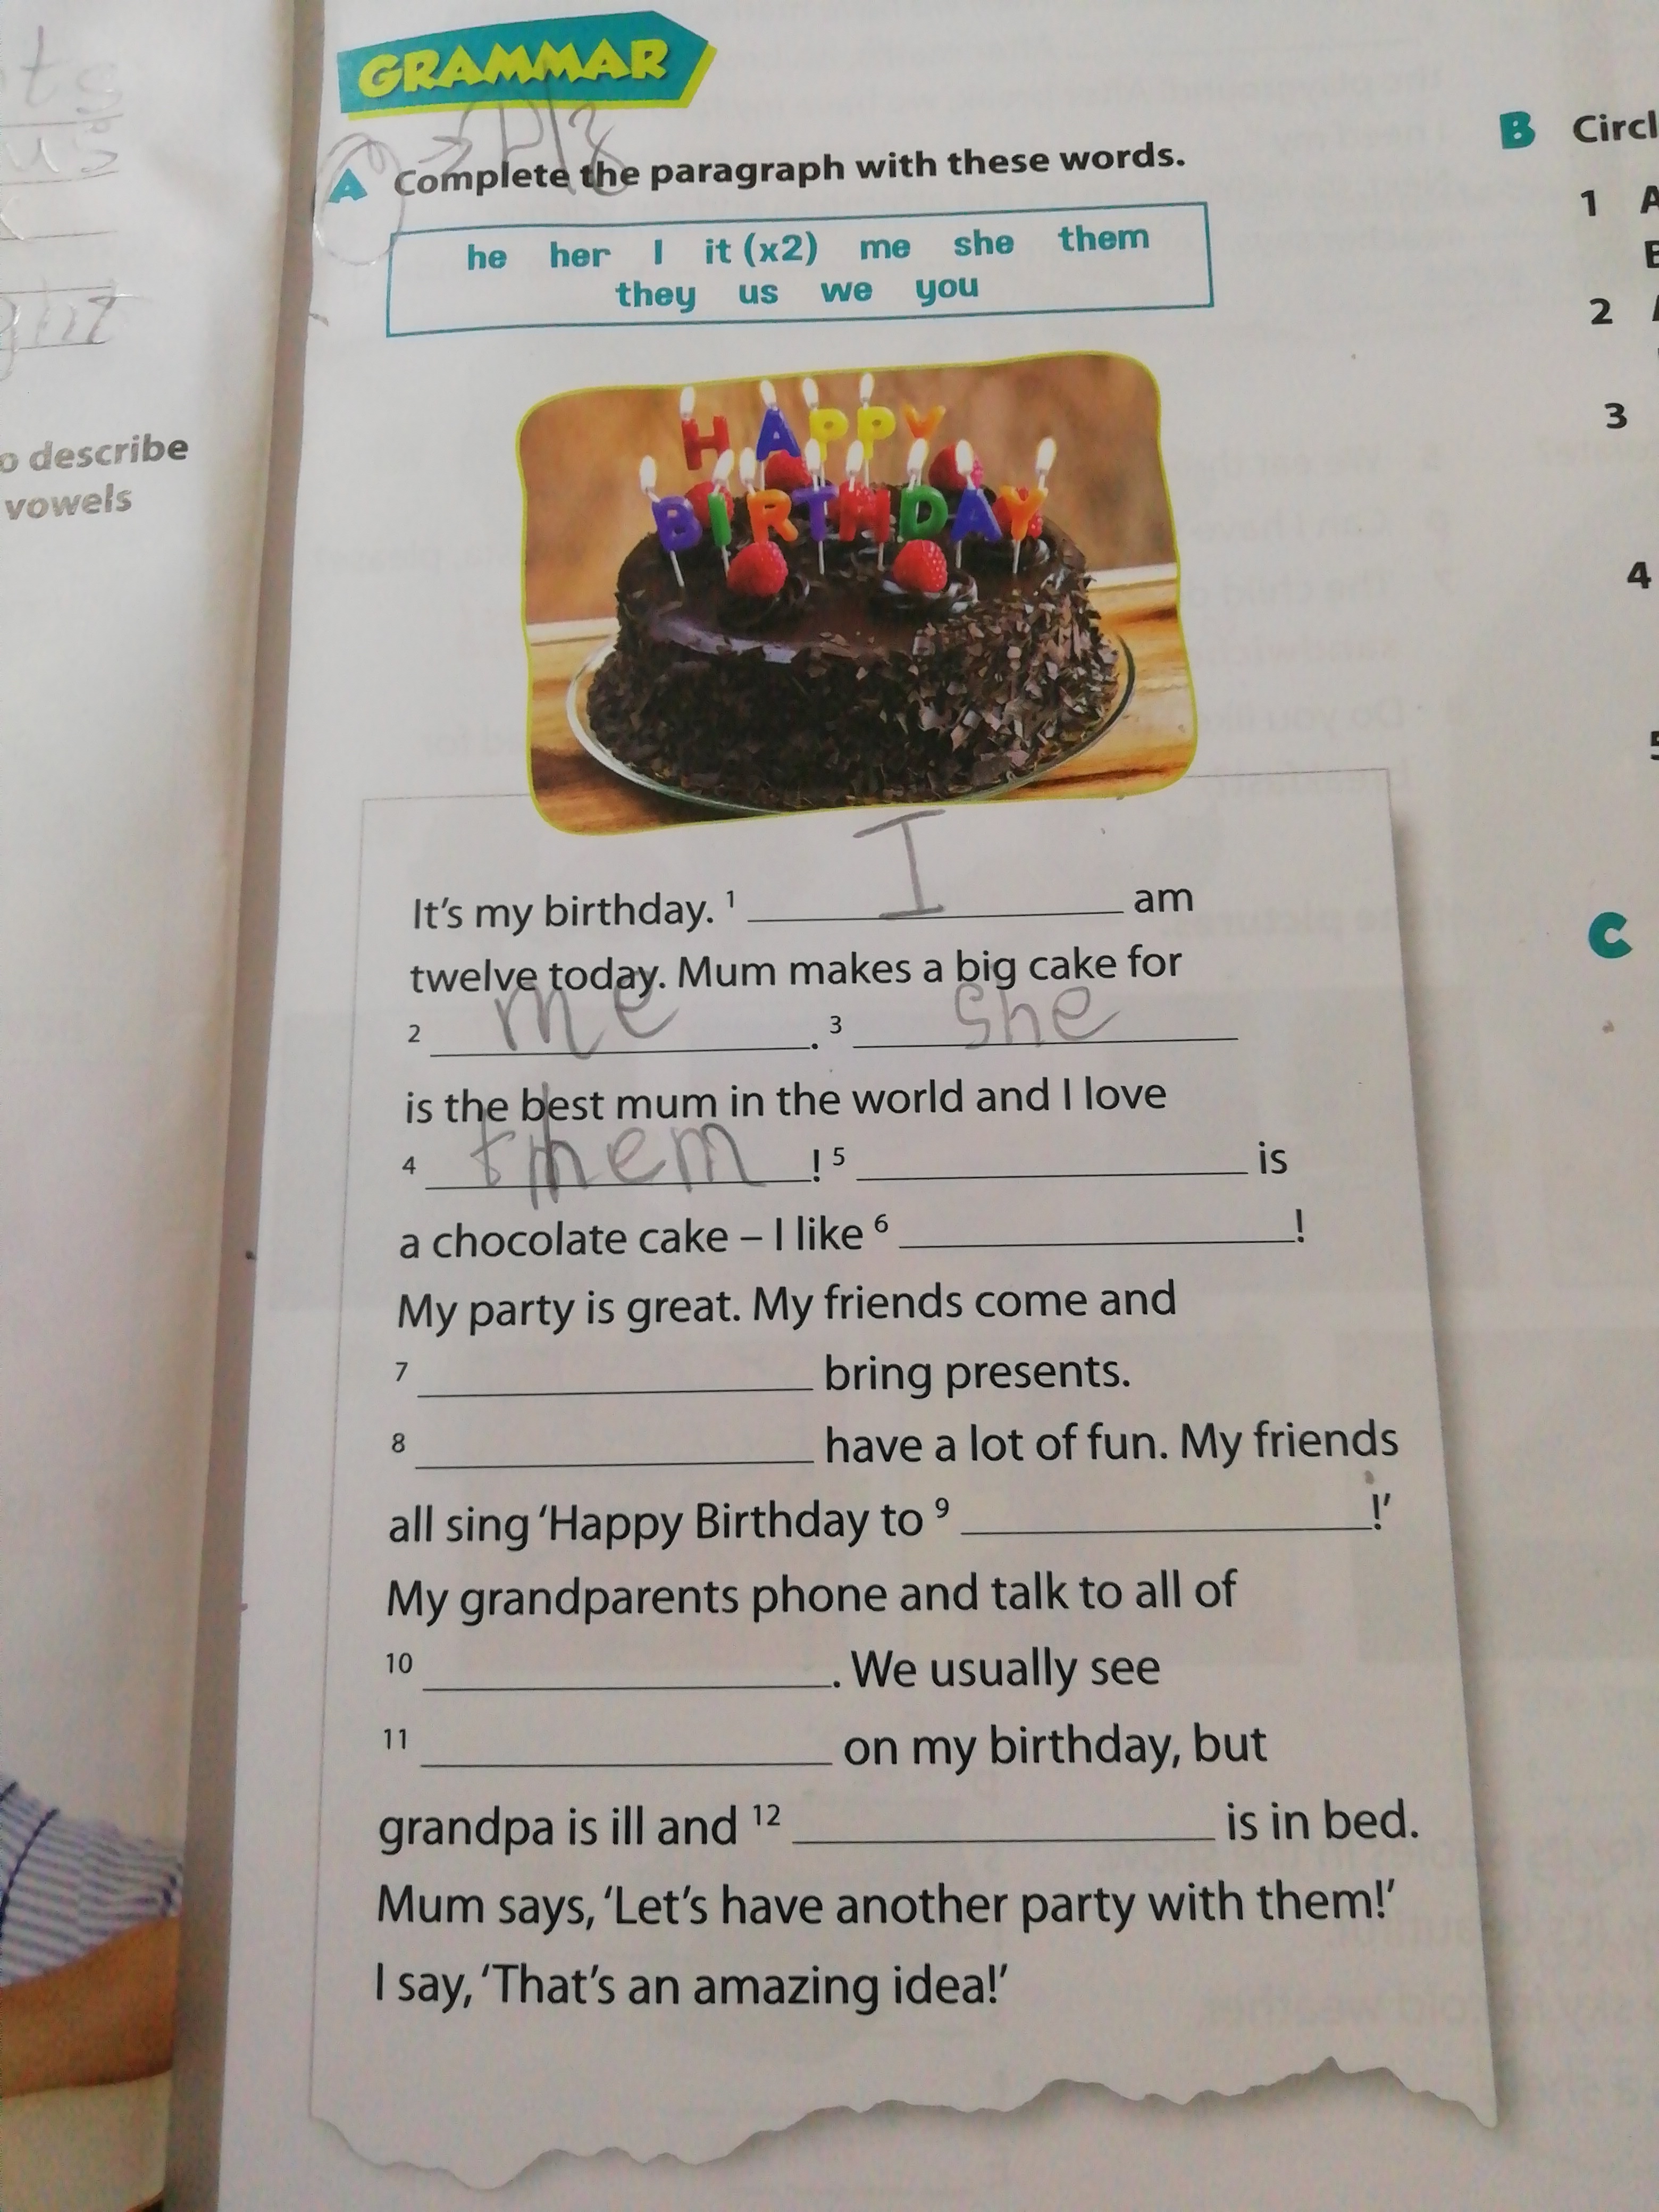 ts
us
ght
o describe
vowels
GRAMMAR
A Complete the paragraph with these words.
he her I it (x2) me she them
they us we you
HAPPY
BIRTHDAY
It's my birthday. 1 I am
twelve today. Mum makes a big cake for
2 me . 3 she
is the best mum in the world and I love
4 them ! 5 is
a chocolate cake – I like 6 !
My party is great. My friends come and
7 bring presents.
8 have a lot of fun. My friends
all sing 'Happy Birthday to 9 !'
My grandparents phone and talk to all of
10 . We usually see
11 on my birthday, but
grandpa is ill and 12 is in bed.
Mum says, 'Let's have another party with them!'
I say, 'That's an amazing idea!'
B Circl
1 A
2
3
4
5
C